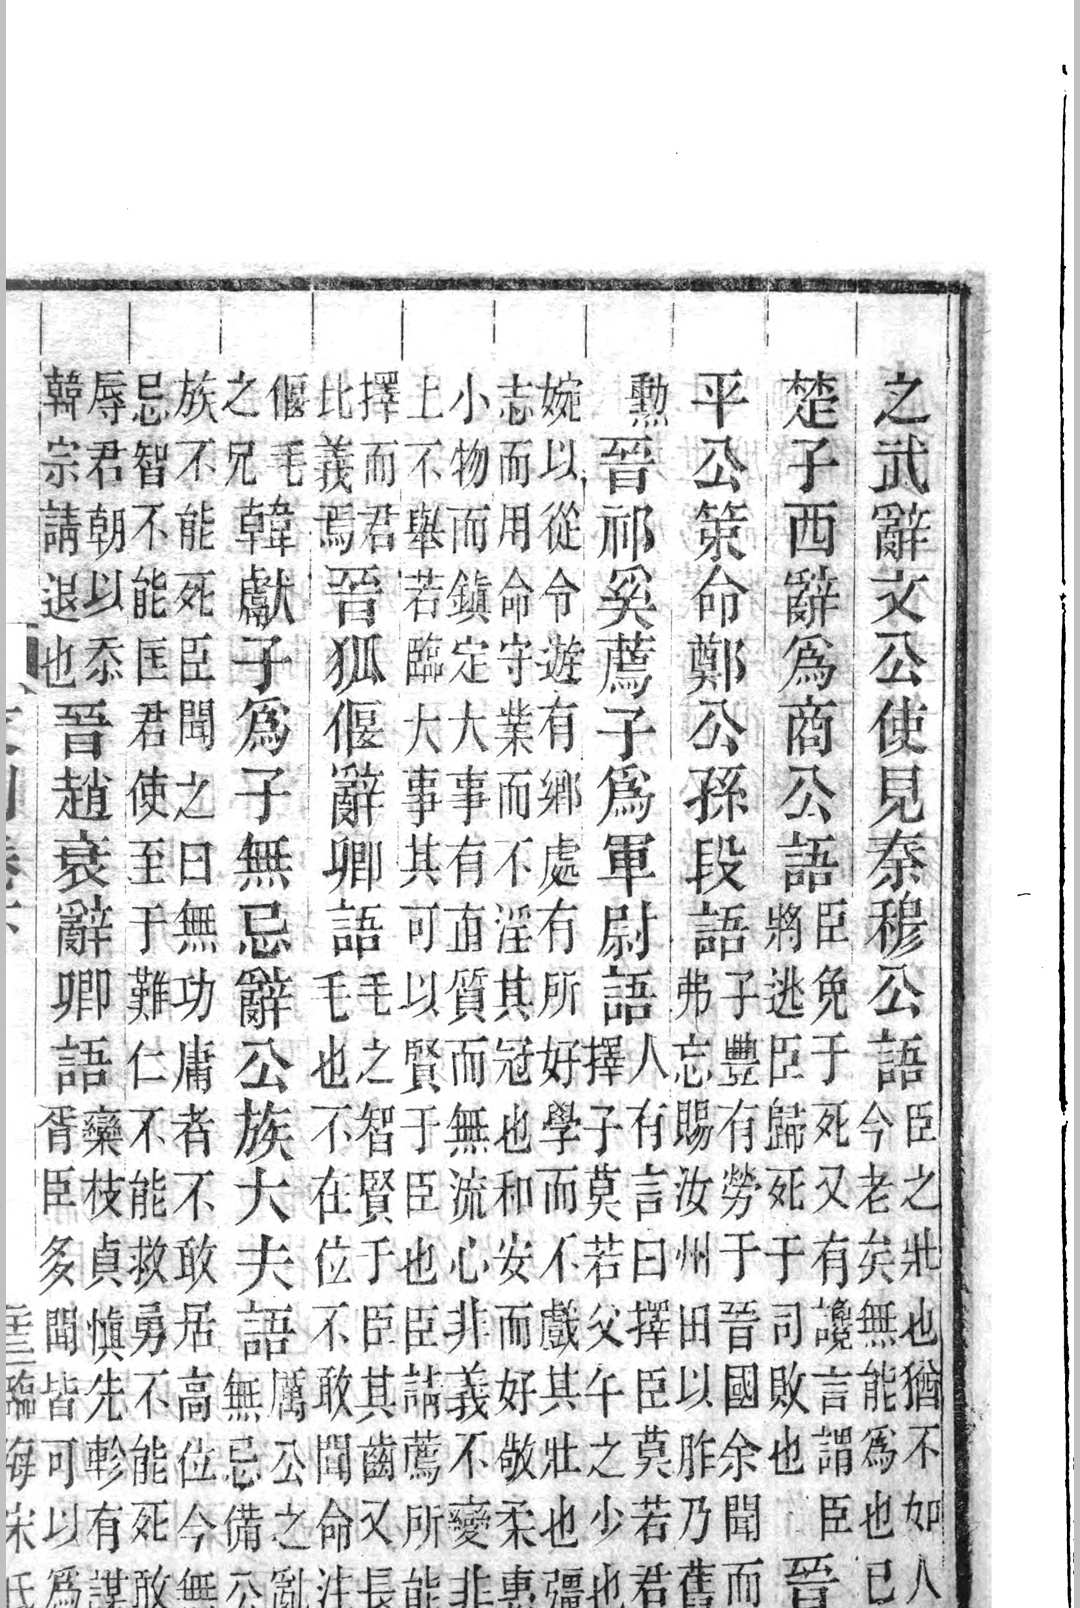 之武辭文公使見秦穆公語
臣之壯也猶不如人
今老矣無能爲也已
楚子西辭爲商公語
臣免于死又有讒言謂臣
將逃臣歸死于司敗也
晉
平公策命鄭公孫段語
子豐有勞于晉國余聞而
弗忘賜汝州田以胙乃舊
勲
晉祁奚薦子爲軍尉語
人有言曰擇臣莫若君
擇子莫若父午之少也
婉以從令遊有鄉處有所好學而不戲其壯也彊
志而用命守業而不淫其冠也和安而好敬柔惠
小物而鎭定大事有直質而無流心非義不變非
上不舉若臨大事其可以賢于臣也臣請薦所能
擇而君
比義焉
晉狐偃辭卿語
毛之智賢于臣其齒又長
毛也不在位不敢聞命注
偃毛
之兄
韓獻子爲子無忌辭公族大夫語
厲公之亂
無忌備公
族不能死臣聞之曰無功庸者不敢居高位今無
忌智不能匡君使至于難仁不能救勇不能死敢
辱君朝以忝
韓宗請退也
晉趙衰辭卿語
欒枝貞愼先軫有謀
胥臣多聞皆可以爲
臨海宋氏